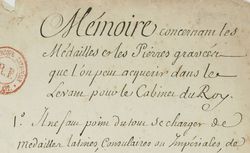 Mémoire concernant les
Médailles et les Pierres gravées
que l'on peut acquerir dans le
Levant pour le Cabinet du Roy.
1.° Il ne faut point du tout se charger de
medailles latines, Consulaires ou Impériales, de